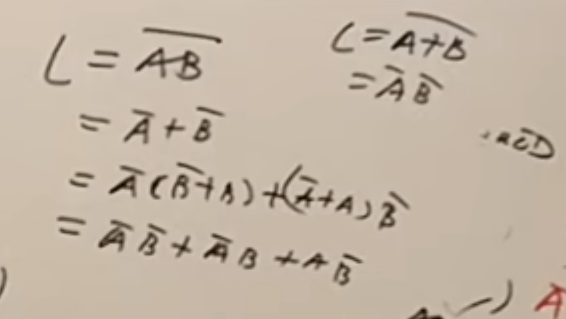 L = \overline{AB}
= \overline{A} + \overline{B}
= \overline{A}(\overline{B}+B)+(\overline{A}+A)\overline{B}
= \overline{A}\overline{B}+\overline{A}B+A\overline{B}
L = \overline{A+B}
= \overline{A}\overline{B}